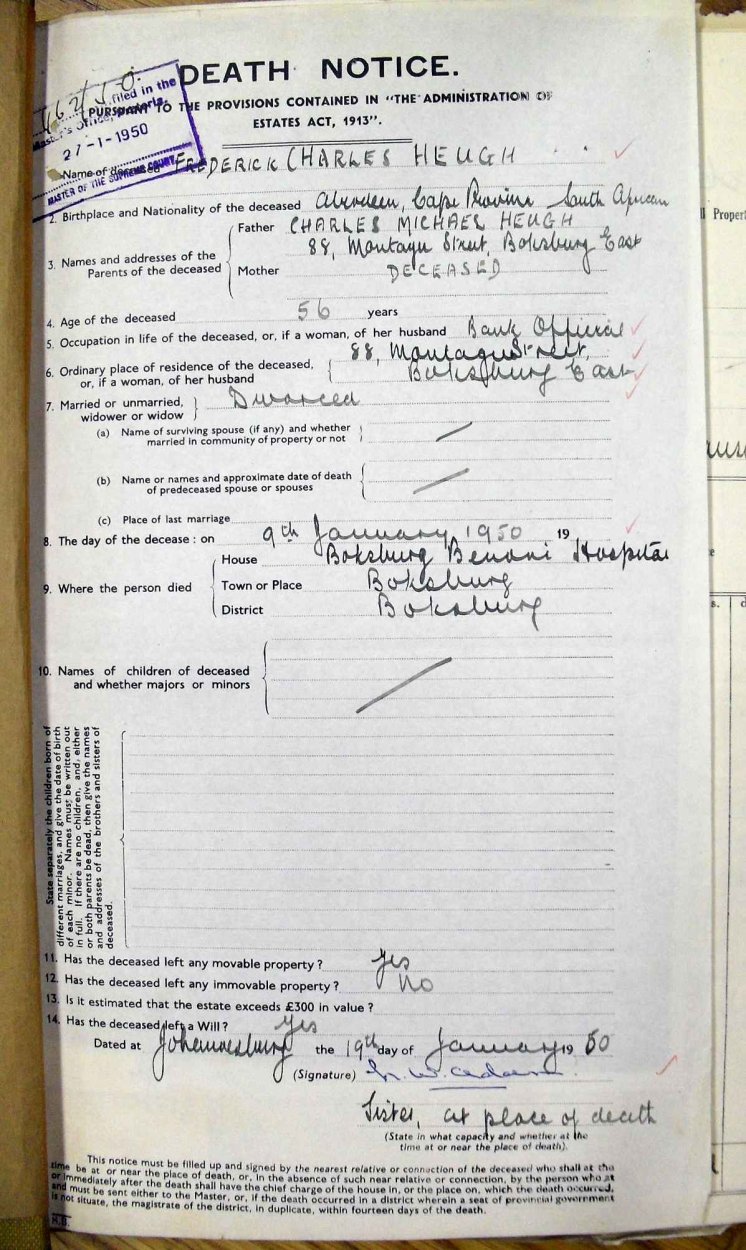 DEATH NOTICE.
PURSUANT TO THE PROVISIONS CONTAINED IN "THE ADMINISTRATION OF
ESTATES ACT, 1913".
filed in the
Master's Office, Pretoria.
27-1-1950
MASTER OF THE SUPREME COURT
Name of deceased FREDERICK CHARLES HEUGH
2. Birthplace and Nationality of the deceased Aberdeen, Cape Province South African
3. Names and addresses of the Parents of the deceased
Father CHARLES MICHAEL HEUGH
88, Montagu Street, Boksburg East
Mother DECEASED
4. Age of the deceased 56 years
5. Occupation in life of the deceased, or, if a woman, of her husband Bank Official
6. Ordinary place of residence of the deceased, 88, Montagu Street,
or, if a woman, of her husband Boksburg East
7. Married or unmarried, Divorced
widower or widow
(a) Name of surviving spouse (if any) and whether
married in community of property or not
(b) Name or names and approximate date of death
of predeceased spouse or spouses
(c) Place of last marriage
8. The day of the decease : on 9th January 1950 19
9. Where the person died
House Boksburg Benoni Hospital
Town or Place Boksburg
District Boksburg
10. Names of children of deceased
and whether majors or minors
State separately the children born of
different marriages, and give the date of birth
of each minor. Names must be written out
in full. If there are no children, and, either
or both parents be dead, then give the names
and addresses of the brothers and sisters of
deceased.
11. Has the deceased left any movable property ? Yes
12. Has the deceased left any immovable property ? No
13. Is it estimated that the estate exceeds £300 in value ?
14. Has the deceased left a Will ? Yes
Dated at Johannesburg the 19th day of January 19 50
(Signature)
Sister, at place of death
(State in what capacity and whether at the
time at or near the place of death).
This notice must be filled up and signed by the nearest relative or connection of the deceased who shall at the
time be at or near the place of death, or, in the absence of such near relative or connection, by the person who at
or immediately after the death shall have the chief charge of the house in, or the place on, which the death occurred,
and must be sent either to the Master, or, if the death occurred in a district wherein a seat of provincial government
is not situate, the magistrate of the district, in duplicate, within fourteen days of the death.